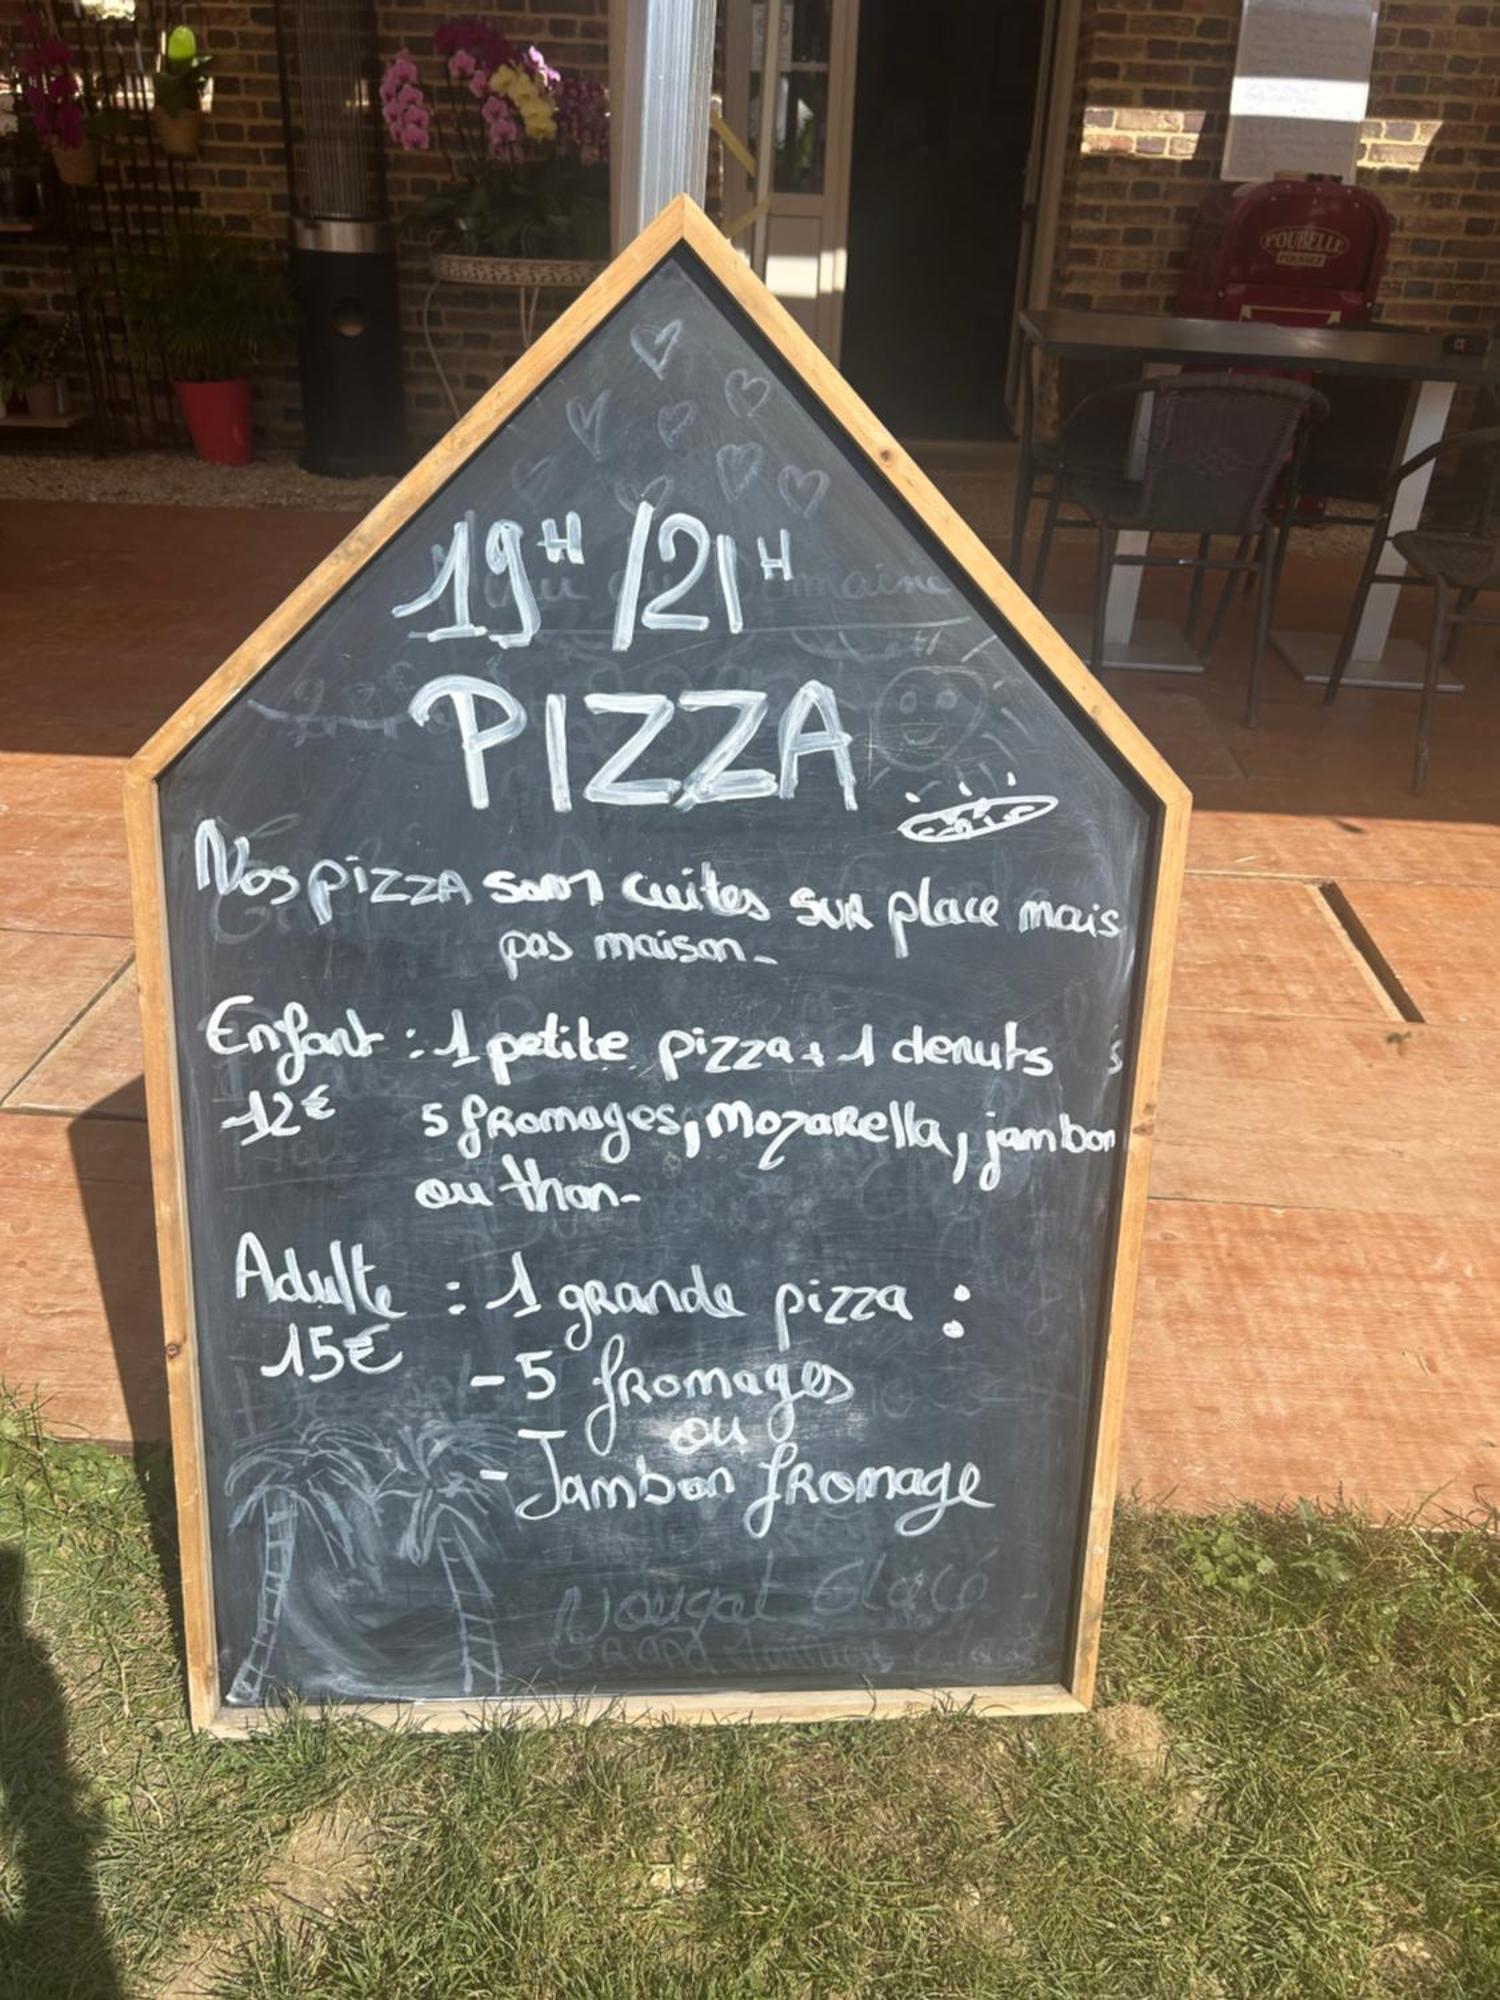 POUBELLE
19H/21H
PIZZA
Nos pizzA sont cuites SUR place mais
pas maison_
Enfant : 1 petite pizza + 1 denuts
12€ 5 fRomages, MozaRella, jambon
ou thon-
Adulte : 1 gRande pizza :
15€
- 5 fRomages
ou
- Jambon fRomage
Nougat Glacé